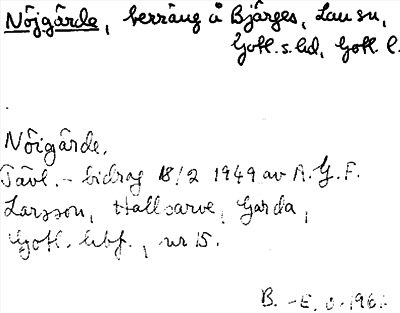 Nöjgårde, terräng å Bjärges, Lau sn,
Gotl. s. hd, Gotl. l.
Nöigårde.
Tävl.-bidrag 18/2 1949 av A. G. F.
Larsson, Hallsarve, Garda,
Gotl. nr 15.
B. -E.